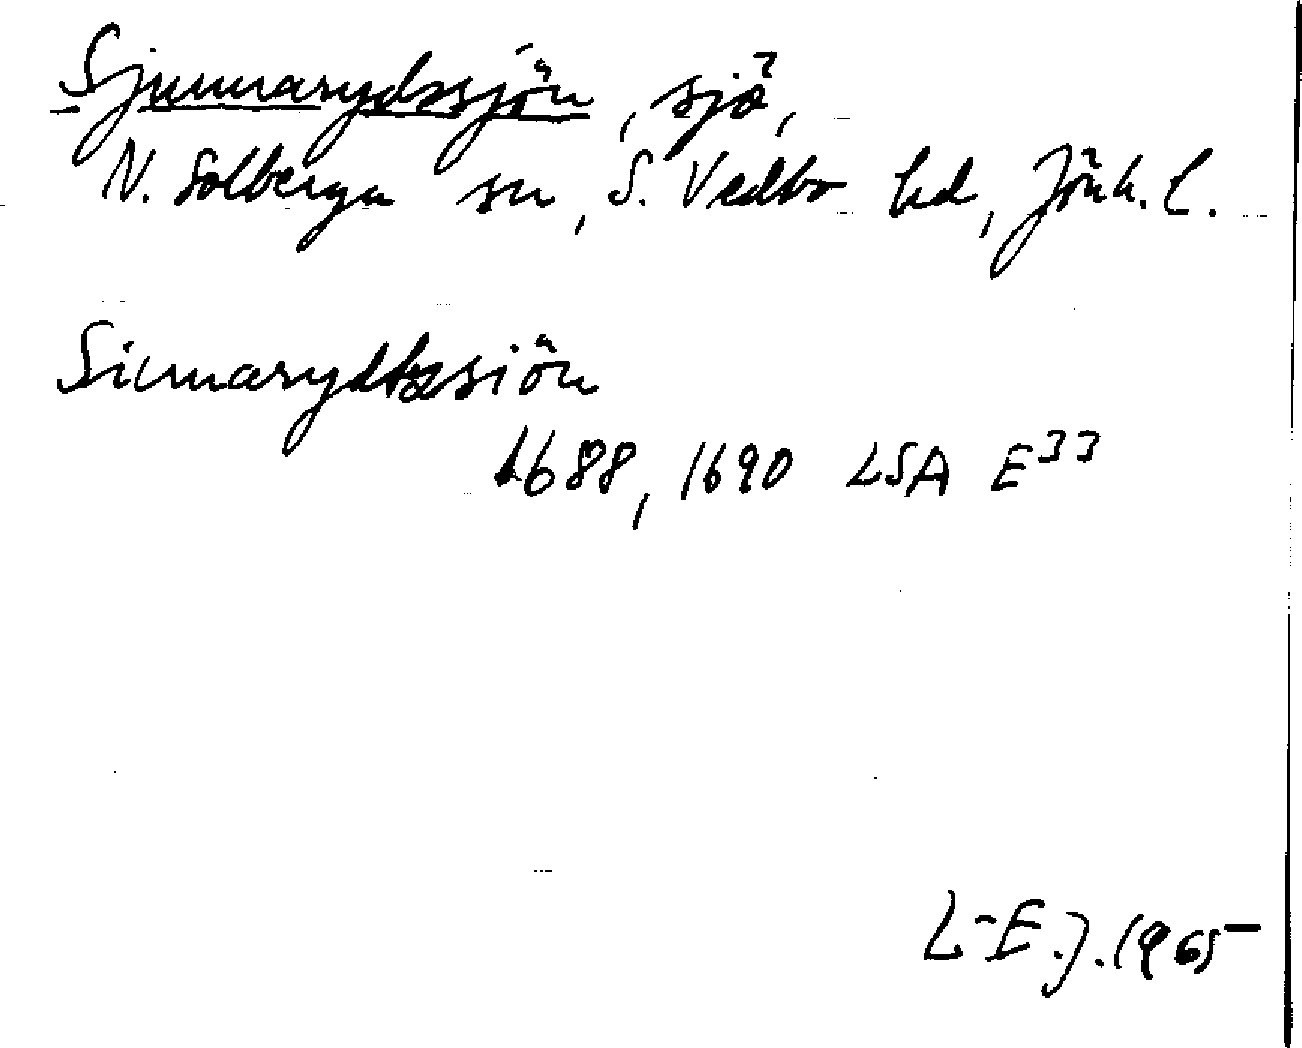 Sjunnarydssjön, sjö,
N. Solberga sn, S. Vedbo hd, Jönk. l.
Siunarydtzsiön
1688, 1690 LSA E33
L-E.J. 1965